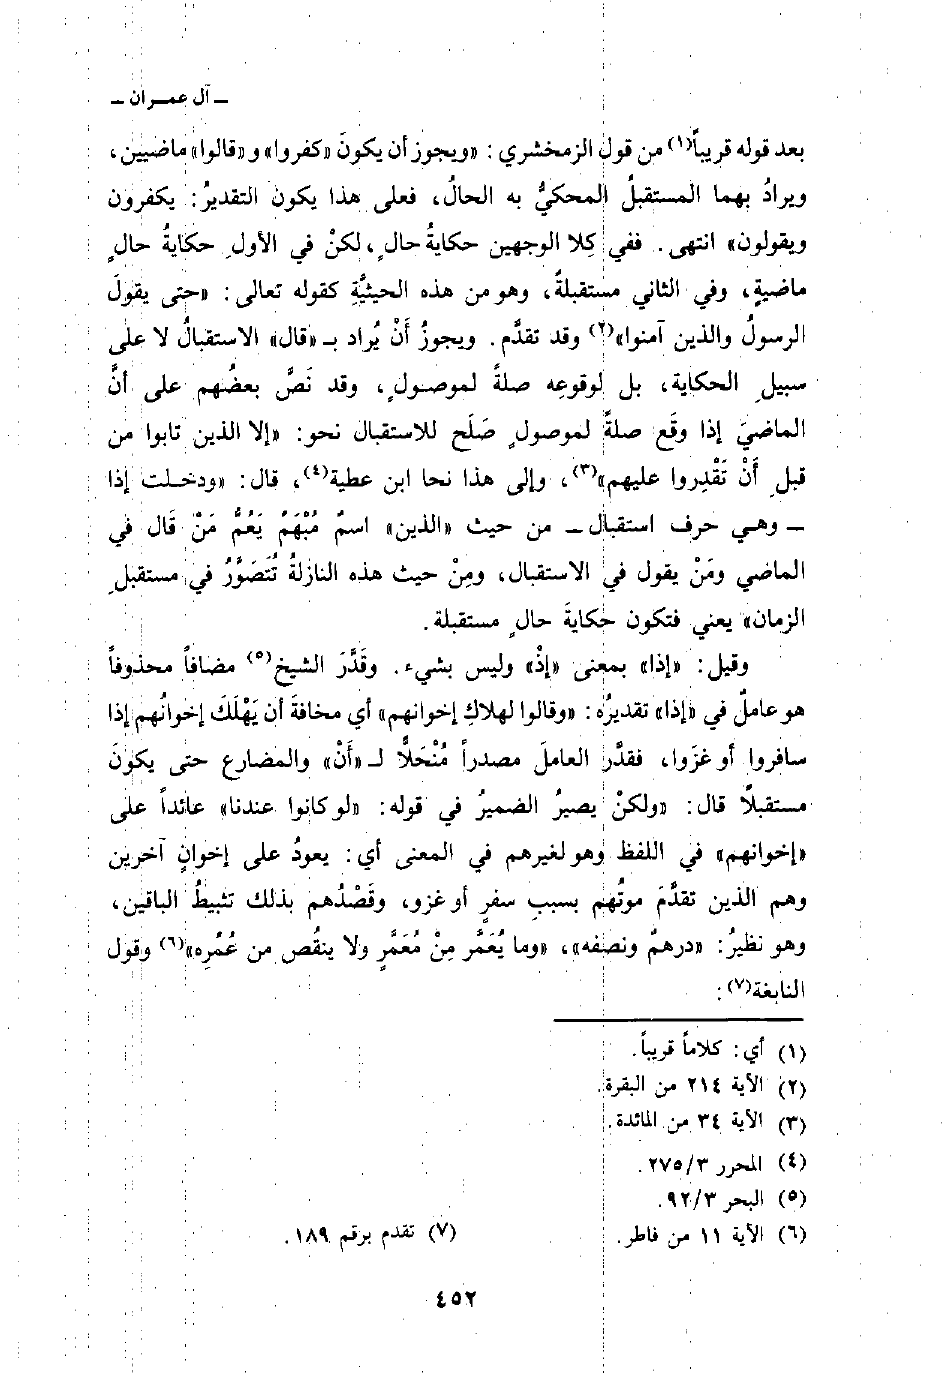 ـ آل عمـران ـ
بعد قوله قريباً(١) من قول الزمخشري : «ويجوز أن يكونَ «كفروا» و«قالوا» ماضيين،
ويرادُ بهما المستقبلُ المحكيُّ به الحالُ، فعلى هذا يكون التقديرُ: يكفرون
ويقولون» انتهى. ففي كِلا الوجهين حكايةُ حالٍ، لكنْ في الأولِ حكايةُ حالٍ
ماضيةٍ، وفي الثاني مستقبلةٌ، وهو من هذه الحيثيَّةِ كقوله تعالى: «حتى يقولَ
الرسولُ والذين آمنوا»(٢) وقد تقدَّم. ويجوزُ أَنْ يُراد بـ«قال» الاستقبالُ لا على
سبيلِ الحكاية، بل لوقوعِه صلةً لموصولٍ، وقد نَصَّ بعضُهم على أنَّ
الماضيَ إذا وقَع صلةً لموصولٍ صَلَح للاستقبال نحو: «إلا الذين تابوا من
قبلِ أَنْ تَقْدِروا عليهم»(٣)، وإلى هذا نحا ابن عطية(٤)، قال: «ودخـلت إذا
ـ وهـي حرف استقبال ـ من حيث «الذين» اسمٌ مُبْهَمٌ يَعُمُّ مَنْ قال في
الماضي ومَنْ يقول في الاستقبال، ومِنْ حيث هذه النازلةُ تُتَصَوَّرُ في مستقبلِ
الزمان» يعني فتكون حكايةَ حالٍ مستقبلة.
وقيل: «إذا» بمعنى «إذْ» وليس بشيء. وقَدَّرَ الشيخ(٥) مضافاً محذوفاً
هو عاملٌ في «إذا» تقديرُه: «وقالوا لهلاكِ إخوانهم» أي مخافةَ أن يَهْلَكَ إخوانُهم إذا
سافروا أو غزَوا، فقدَّر العاملَ مصدراً مُنْحَلَّا لـ«أَنْ» والمضارع حتى يكونَ
مستقبلًا قال: «ولكنْ يصيرُ الضميرُ في قوله: «لو كانوا عندنا» عائداً على
«إخوانهم» في اللفظ وهو لغيرهم في المعنى أي: يعودُ على إخوانٍ آخرين
وهم الذين تقدَّمَ موتُهم بسببِ سفرٍ أو غزو، وقَصْدُهم بذلك تثبيطُ الباقين،
وهو نظيرُ: «درهمٌ ونصفه»، «وما يُعَمَّر مِنْ مُعَمَّرٍ ولا ينقُص من عُمُرِه»(٦) وقول
النابغة(٧):
(١) أي: كلاماً قريباً.
(٢) الآية ٢١٤ من البقرة.
(٣) الآية ٣٤ من المائدة.
(٤) المحرر ٢٧٥/٣.
(٥) البحر ٩٢/٣.
(٦) الآية ١١ من فاطر.
(٧) تقدم برقم ١٨٩.
٤٥٢